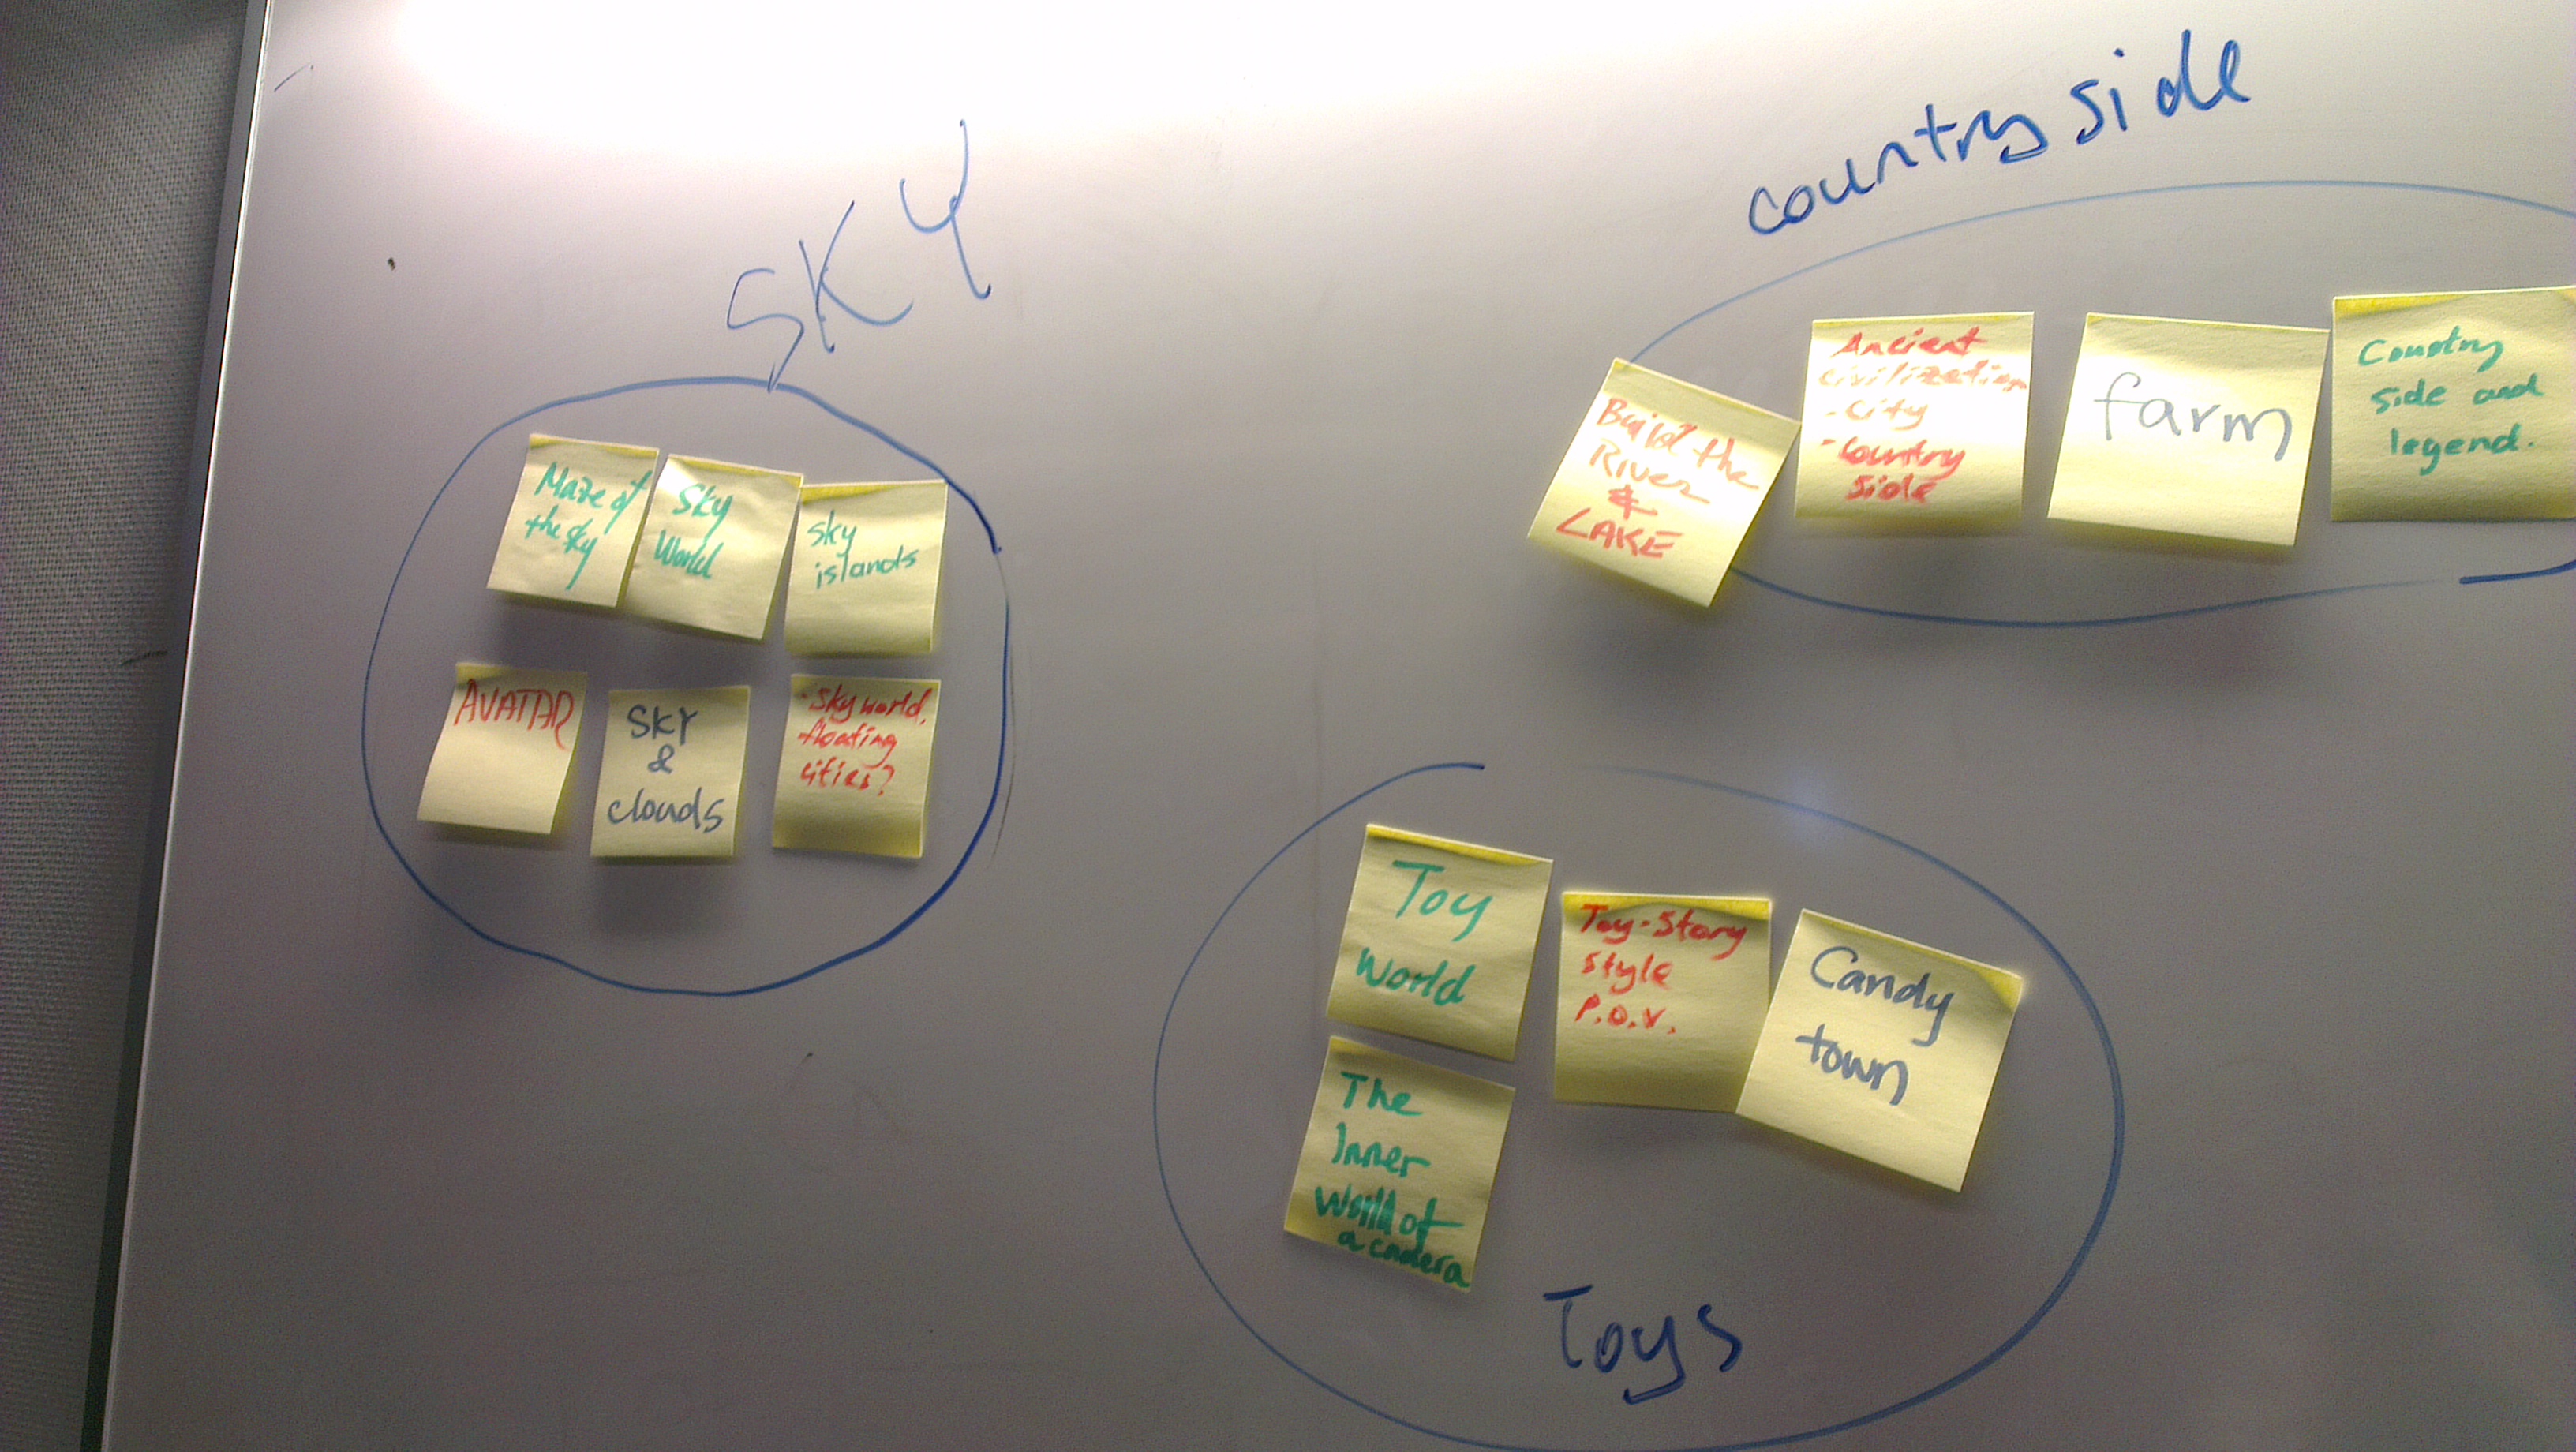 SKY
Maze of
the sky
Sky
World
sky
islands
AVATAR
SKY
&
clouds
- Sky world,
floating
cities?
country side
Build the
River
&
LAKE
Ancient
civilization
- City
- Country
side
farm
Country
side and
legend.
Toy
World
Toy-Story
style
P.O.V.
Candy
town
The
Inner
World of
a camera
Toys